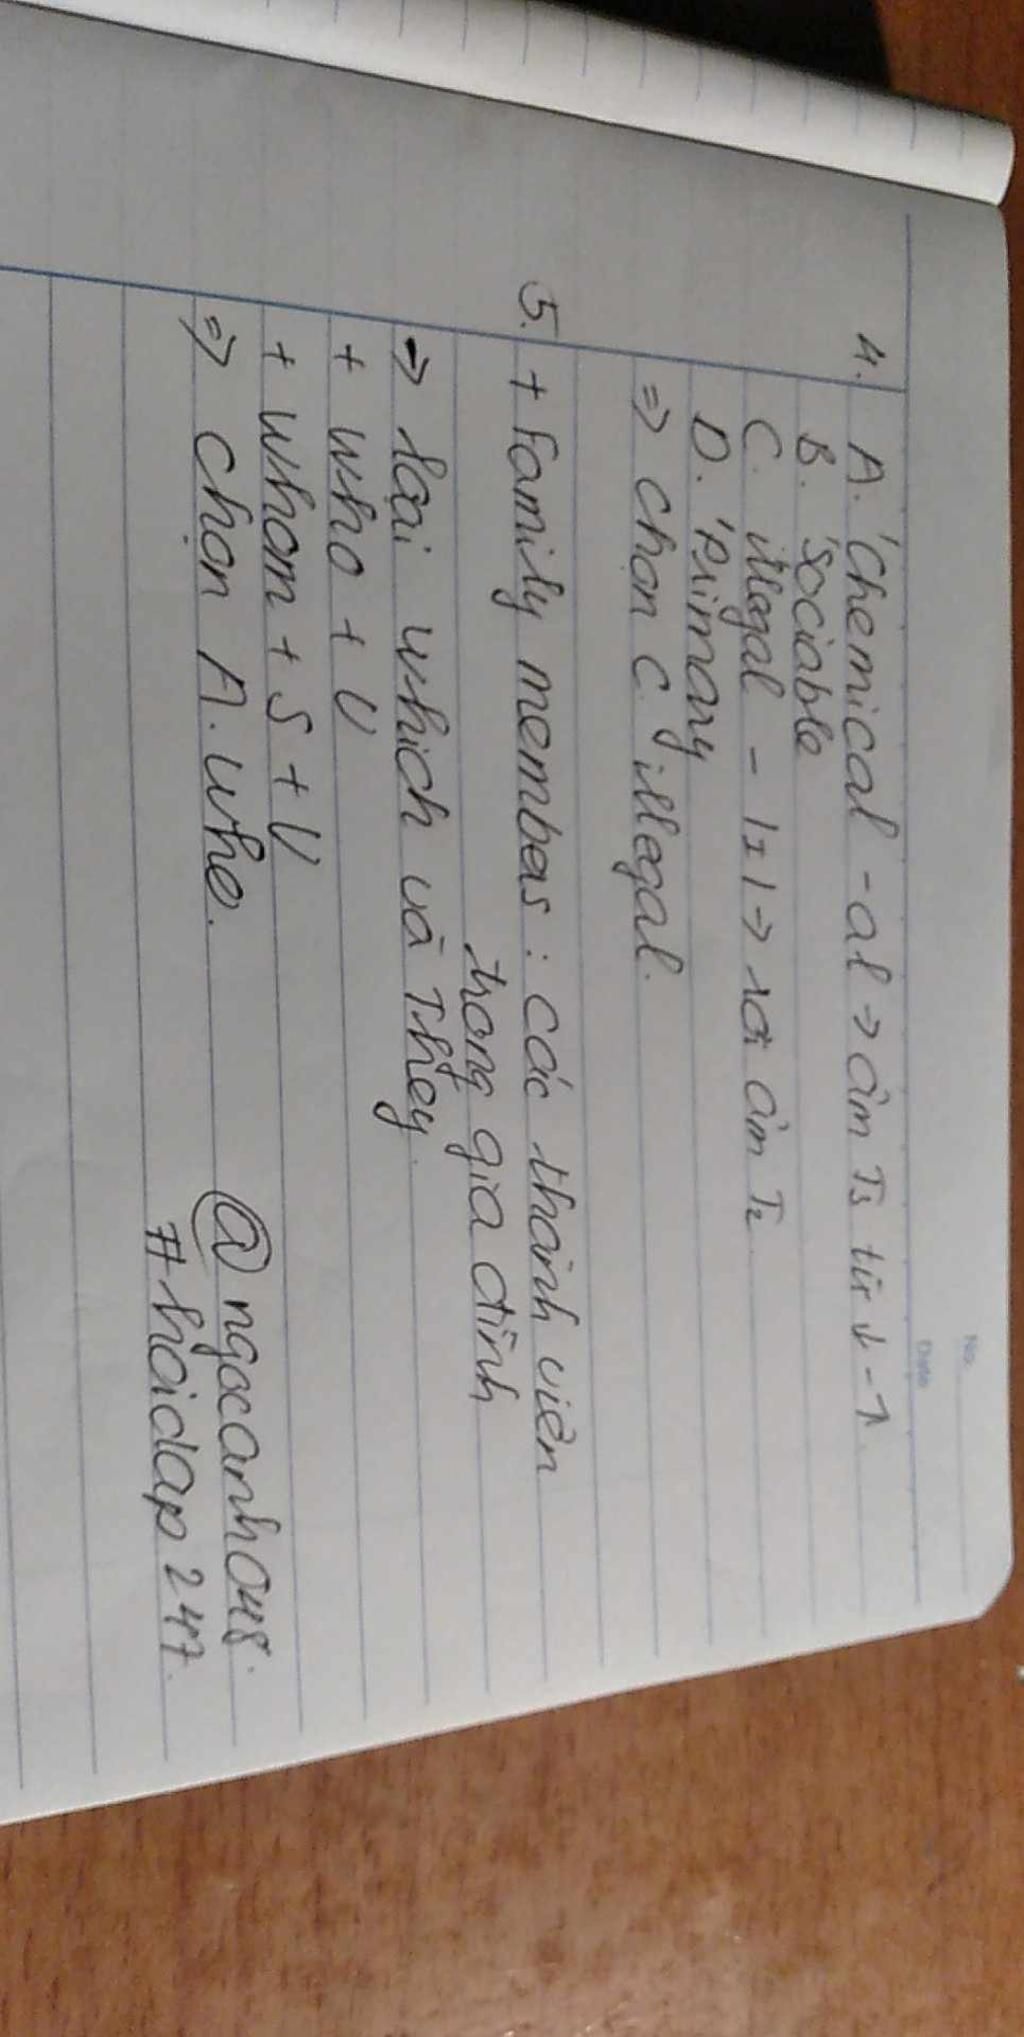 No.
Date
4. A. 'Chemical - al → âm T3 từ ↓ - ↑
B. 'Sociable
C. illegal - /ɪ/ → rơi âm T2
D. 'Primary
⇒ Chọn C. illegal.
5. + Family members : các thành viên
trong gia đình
→ loại which và They.
+ who + V
+ whom + S + V
⇒ chọn A. who.
@ngocanh048.
#hoidap247.